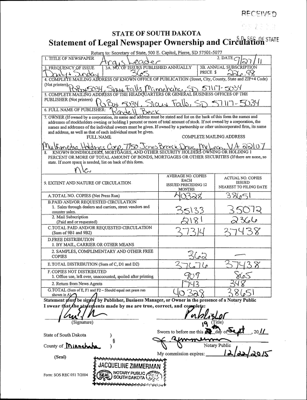 RECEIVED
STATE OF SOUTH DAKOTA
Statement of Legal Newspaper Ownership and Circulation
Return to: Secretary of State, 500 E. Capitol, Pierre, SD 57501-5077
1. TITLE OF NEWSPAPER Argus Leader
2. DATE 9/27/11
3. FREQUENCY OF ISSUE Daily + Sunday
3A. NO. OF ISSUES PUBLISHED ANNUALLY 365
3B. ANNUAL SUBSCRIPTION PRICE $
4. COMPLETE MAILING ADDRESS OF KNOWN OFFICE OF PUBLICATION (Street, City, County, State and ZIP+4 Code)
(Not printers) Po Box 5034, Sioux Falls, Minnehaha, SD 57117-5034
5. COMPLETE MAILING ADDRESS OF THE HEADQUARTERS OR GENERAL BUSINESS OFFICES OF THE
PUBLISHER (Not printers) Po Box 5034, Sioux Falls, SD 57117-5034
6. FULL NAME OF PUBLISHER: Randell Beck
7. OWNER (If owned by a corporation, its name and address must be stated and also the names and
addresses of stockholders owning or holding 1 percent or more of total amount of stock. If not owned by a corporation, the
names and addresses of the individual owners must be given. If owned by a partnership or other unincorporated firm, its name
and address, as well as that of each individual must be given.
FULL NAME COMPLETE MAILING ADDRESS
Multimedia Holdings Corp, 7950 Jones Branch Drive, McLean, VA 22107
8. KNOWN BONDHOLDERS, MORTGAGEES, AND OTHER SECURITY HOLDERS OWNING OR HOLDING 1
PERCENT OR MORE OF TOTAL AMOUNT OF BONDS, MORTGAGES OR OTHER SECURITIES
9. EXTENT AND NATURE OF CIRCULATION
AVERAGE NO. COPIES EACH ISSUED PRECEDING 12 MONTHS
ACTUAL NO. COPIES ISSUED NEAREST TO FILING DATE
A. TOTAL NO. COPIES (Net Press Run) 40328 38651
B. PAID AND/OR REQUESTED CIRCULATION
1. Sales through dealers and carriers, street vendors and counter sales 35133 35072
2. Mail Subscription (Paid and or requested) 2181 2366
C. TOTAL PAID AND/OR REQUESTED CIRCULATION (Sum of 9B1 and 9B2) 37314 37438
D. FREE DISTRIBUTION
1. BY MAIL, CARRIER OR OTHER MEANS
2. SAMPLES, COMPLIMENTARY AND OTHER FREE COPIES 362 —
E. TOTAL DISTRIBUTION (Sum of C, D1 and D2) 37676 37438
F. COPIES NOT DISTRIBUTED
1. Office use, left over, unaccounted, spoiled after printing 909 865
2. Return from News Agents 1743 348
G. TOTAL (Sum of E, F1 and F2 - Should equal net press run shown in A) 40328 38651
Statement must be signed by Publisher, Business Manager, or Owner in the presence of a Notary Public
I swear that the statements made by me are true, correct, and complete:
(Signature)
Publisher
(Title)
State of South Dakota )
County of Minnehaha )
Sworn to before me this day of Sept 2011
Notary Public
(Seal)
My commission expires: 12/22/2015
JACQUELINE ZIMMERMAN
NOTARY PUBLIC
SOUTH DAKOTA